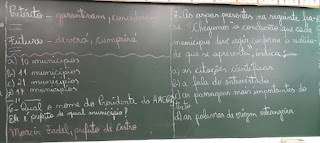 Pretérito - garantiram,
Futuro - deverá, cumprirá
a) 10 municípios
b) 11 municípios
c) 21 municípios
d) 17 municípios
6- Qual o nome do Presidente da
Ele é prefeito de qual município?
Marcin Fadel, prefeito de Castro
7. As aspas presentes na seguinte
"Chegamos a conclusão que cada
município deve agir conforme a realida-
de que se apresenta", indica:
a) as citações científicas
b) a fala do entrevistado
c) as passagens mais importantes do
texto
d) as palavras de origem estrangeira